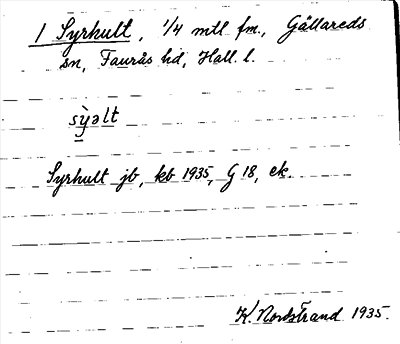 1 Syrhult, 1/4 mtl. fm., Gällareds
sn, Faurås hd, Hall. l.
sỳəlt
Syrhult jb, kb 1935, G 18, ek.
K. Nordstrand 1935.